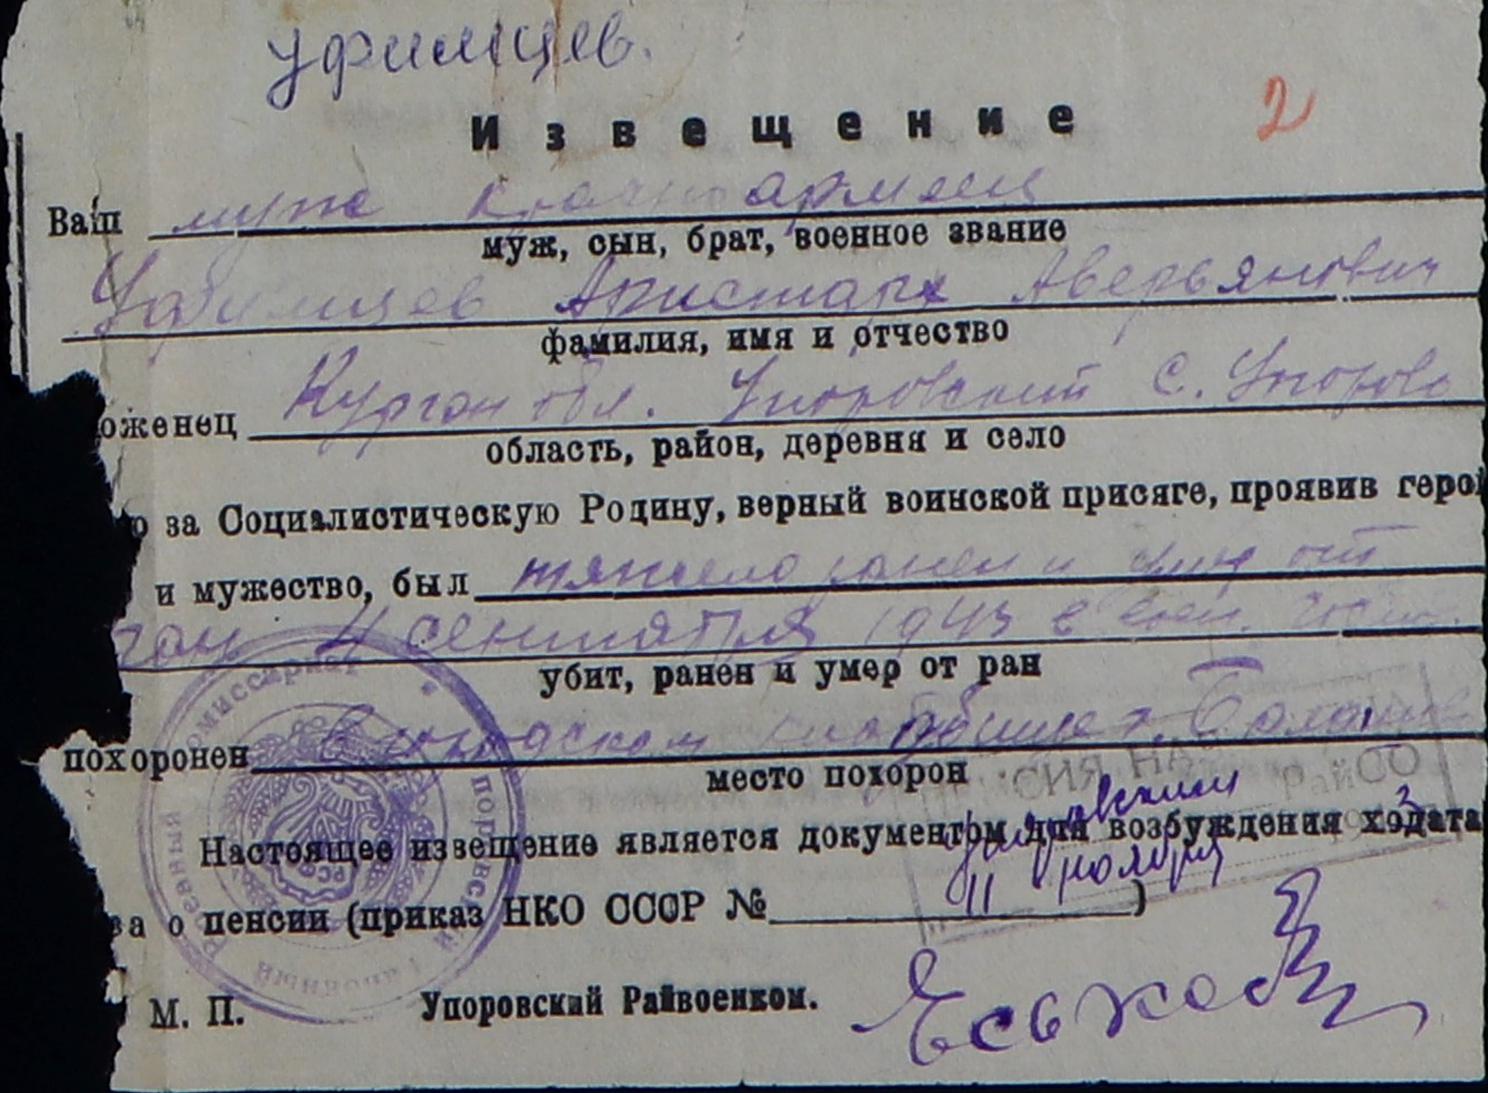 Уфимцев.
Извещение
2
Ваш муж красноармеец
муж, сын, брат, военное звание
Уфимцев Аристарх Аверьянович
фамилия, имя и отчество
оженец Курган обл. Упоровский с. Упорово
область, район, деревня и село
о за Социалистическую Родину, верный воинской присяге, проявив геро
и мужество, был тяжело ранен и умер от
ран 4 сентября 1943 в
убит, ранен и умер от ран
похоронен В городском кладбище г.
место похорон
СИЯ НАЗ
РайСО
Настоящее извещение является документом для возбуждения ходата
ва о пенсии (приказ НКО СССР №)
Упоровским
11 ноября 3
М. П. Упоровский Райвоенком.
Еськов
комиссариат
Упоровский
районный